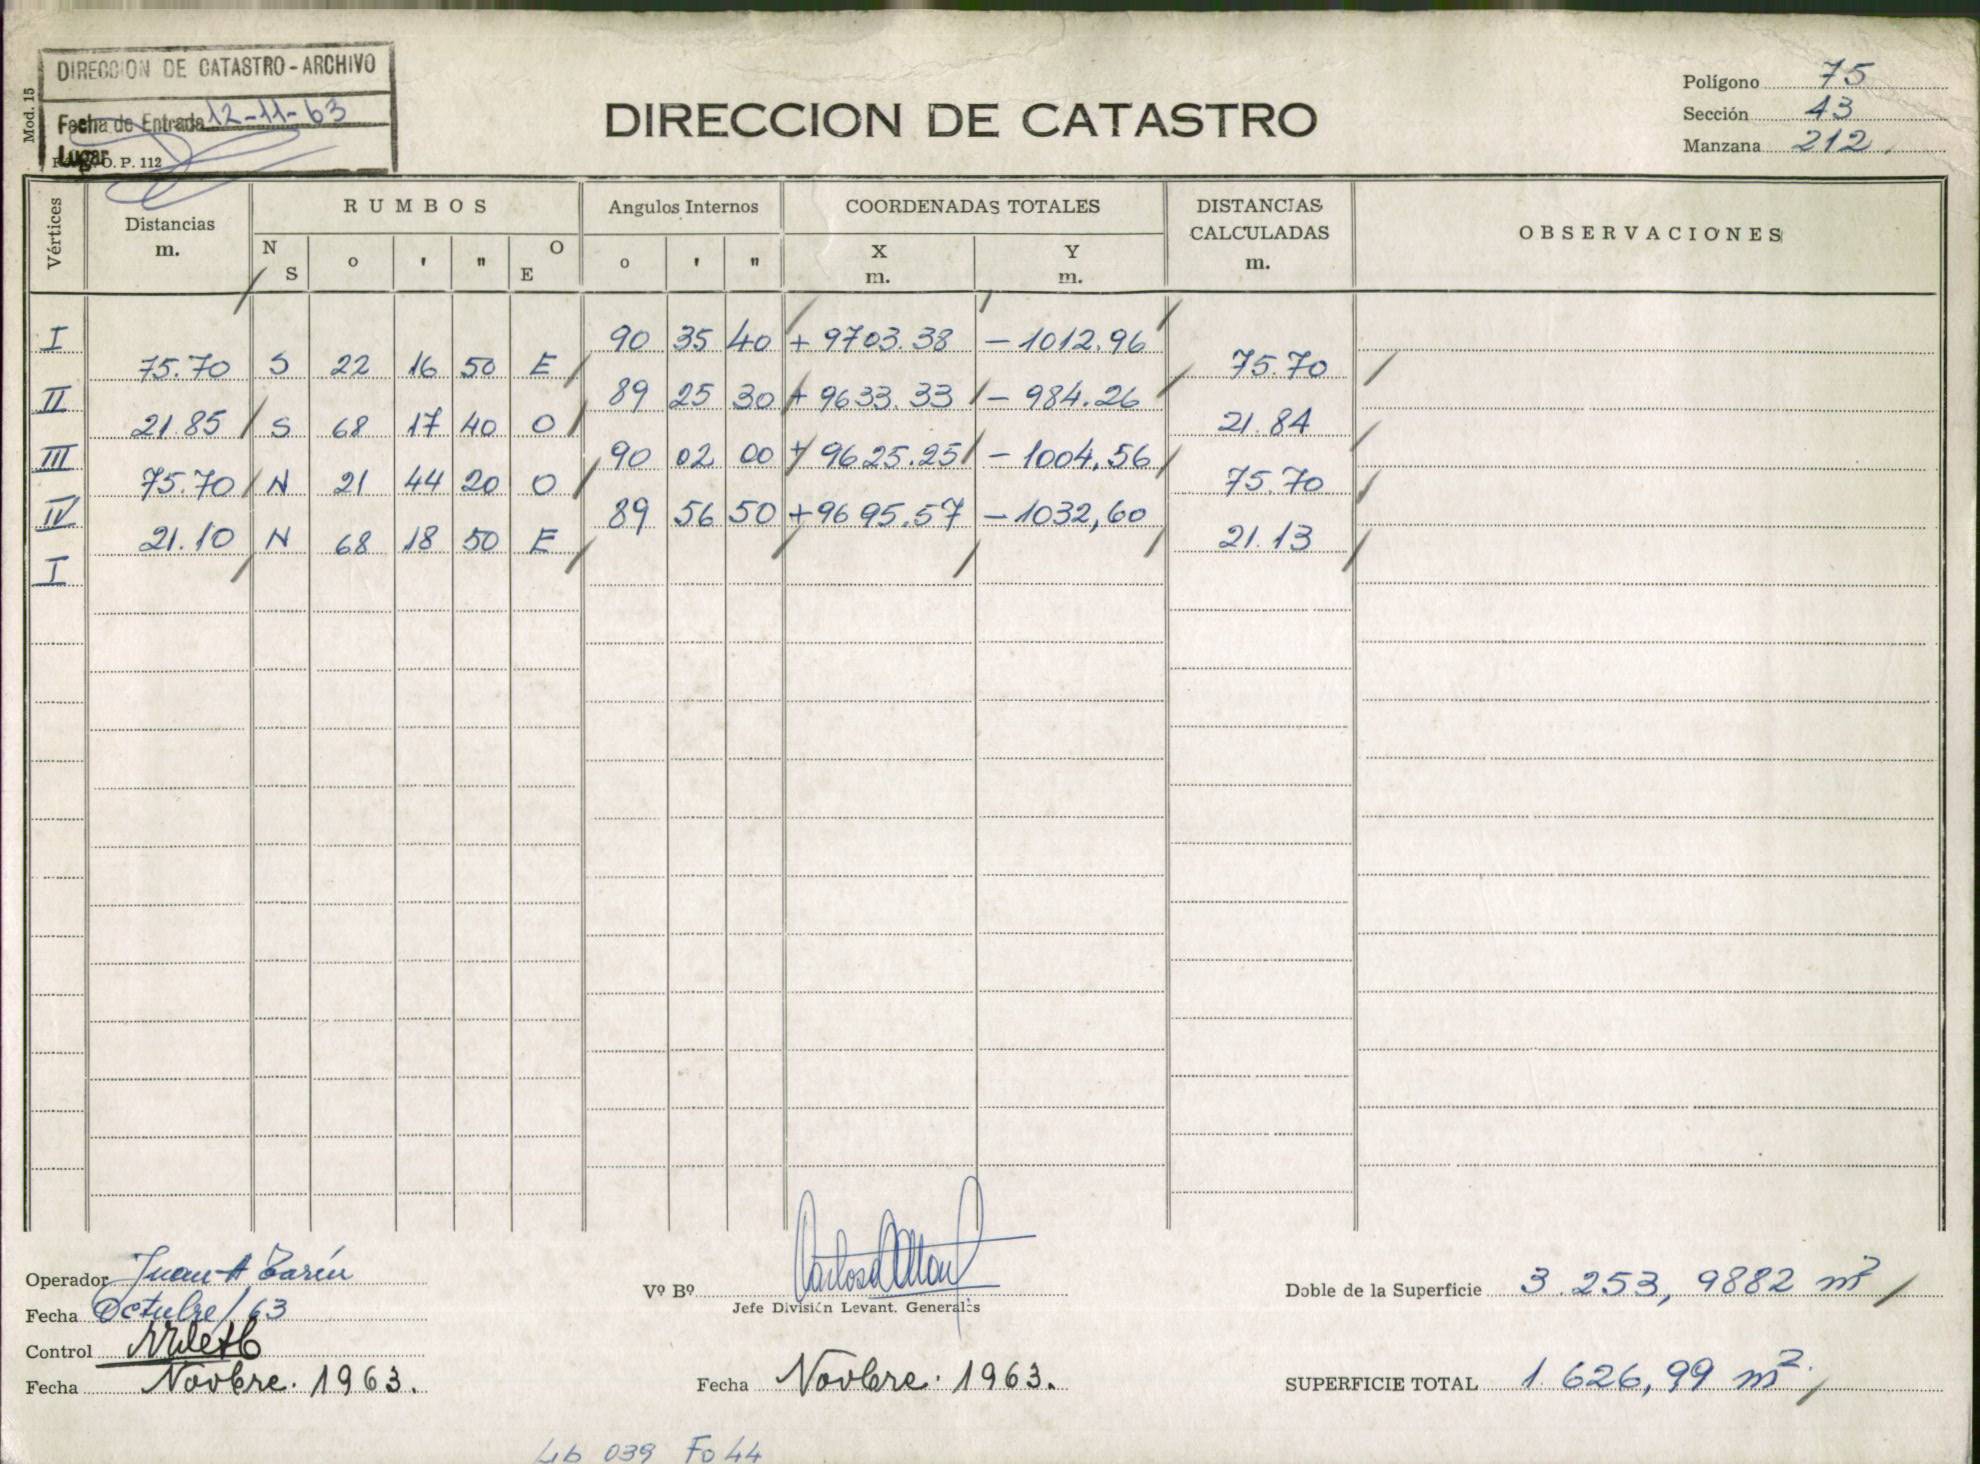 DIRECCION DE CATASTRO - ARCHIVO
Fecha de Entrada 12-11-63
Lugar
O. P. 112
Mod. 15
DIRECCION DE CATASTRO
Polígono 75
Sección 43
Manzana 212
Vértices
Distancias m.
RUMBOS
N S o ' " O E
Angulos Internos
o ' "
COORDENADAS TOTALES
X m. Y m.
DISTANCIAS CALCULADAS m.
OBSERVACIONES
I 90 35 40 + 9703.38 - 1012.96
75.70 S 22 16 50 E 75.70
II 89 25 30 + 9633.33 - 984.26
21.85 S 68 17 40 O 21.84
III 90 02 00 + 9625.25 - 1004,56
75.70 N 21 44 20 O 75.70
IV 89 56 50 + 9695.57 - 1032,60
21.10 N 68 18 50 E 21.13
I
Operador Juan A
Fecha Octubre/63
Control
Fecha Novbre. 1963.
Vº Bº
Jefe División Levant. Generales
Fecha Novbre. 1963.
Doble de la Superficie 3.253,9882 m²
SUPERFICIE TOTAL 1.626,99 m².
Lib 039 Fo 44